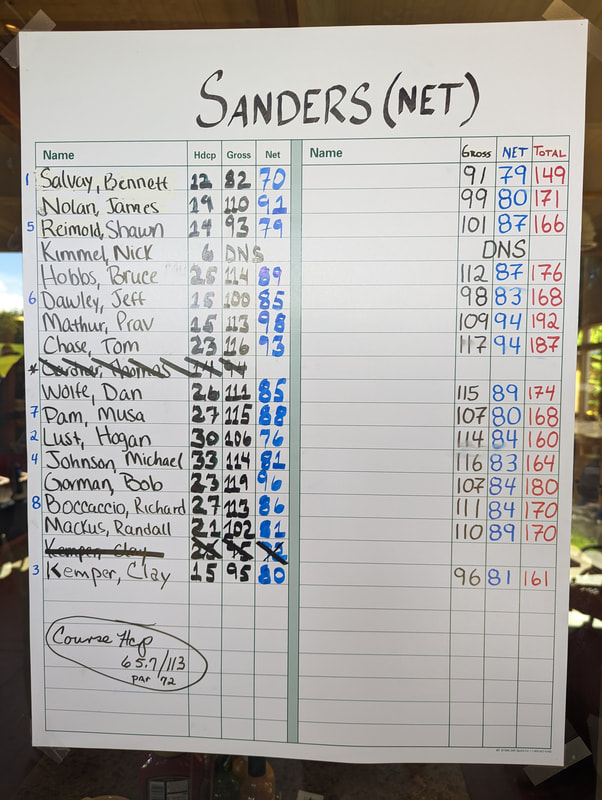 SANDERS (NET)
Name Hdcp Gross Net Name GROSS NET TOTAL
1 Salvay, Bennett 12 82 70 91 79 149
Nolan, James 19 110 91 99 80 171
5 Reimold, Shawn 14 93 79 101 87 166
Kimmel, Nick 6 DNS DNS
Hobbs, Bruce 25 114 89 112 87 176
6 Dawley, Jeff 15 100 85 98 83 168
Mathur, Prav 15 113 98 109 94 192
Chase, Tom 23 116 93 117 94 187
* Gardner, Thomas 14
Wolfe, Dan 26 111 85 115 89 174
7 Pam, Musa 27 115 88 107 80 168
2 Lust, Hogan 30 106 76 114 84 160
4 Johnson, Michael 33 114 81 116 83 164
Gorman, Bob 23 119 96 107 84 180
8 Boccaccio, Richard 27 113 86 111 84 170
Mackus, Randall 21 102 81 110 89 170
Kemper, Clay
3 Kemper, Clay 15 95 80 96 81 161
Course Hcp
65.7/113
par 72